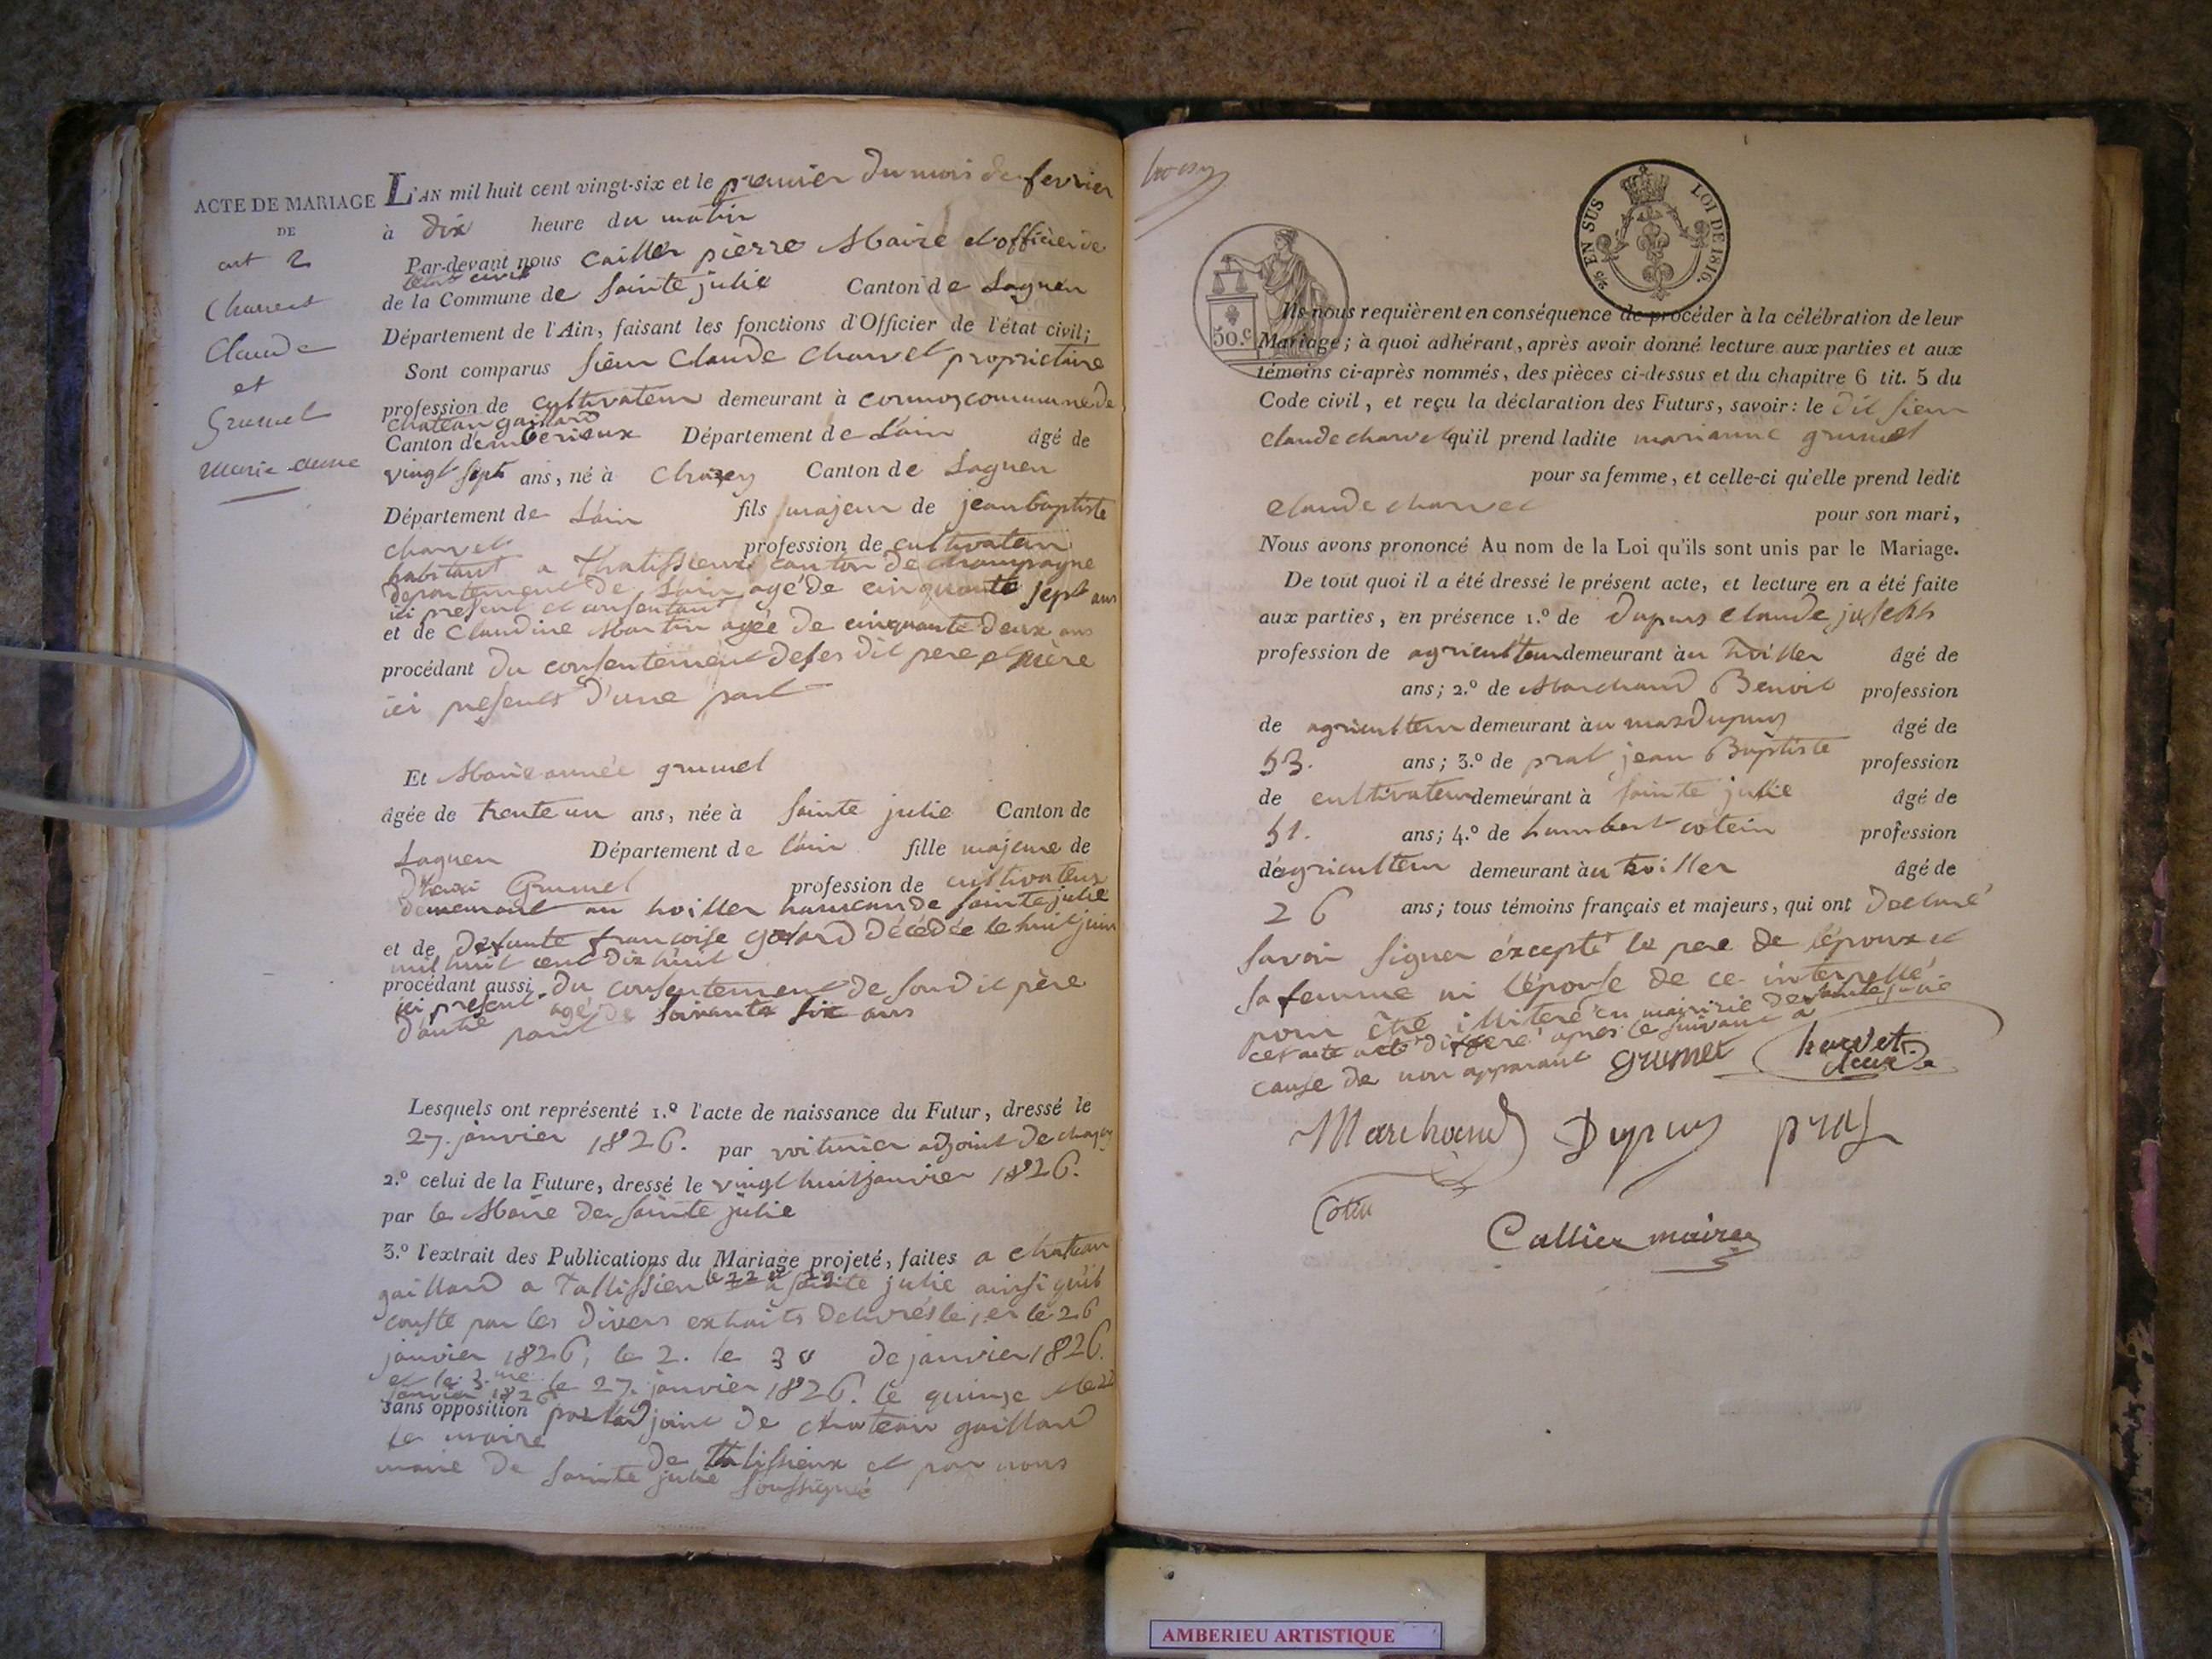 ACTE DE MARIAGE
DE
art 2
Charvet
Claude
et
Grumel
marie anne
L'AN mil huit cent vingt-six et le premier du mois de fevrier
à dix heure du matin
Par-devant nous Caillier pierre Maire et officier de
letat civil
de la Commune de Sainte julie Canton de Lagneu
Département de l'Ain, faisant les fonctions d'Officier de l'état civil;
Sont comparus Sieur Claude Charvet proprietaire
profession de cultivateur demeurant à cormoz commune de
chateau gaillard
Canton d'emberieux Département de L'ain âgé de
vingt sept ans, né à Chazey Canton de Lagneu
Département de L'ain fils majeur de jean baptiste
charvet profession de cultivateur
habitant a thalissieux canton de champagne
departement de L'ain agé de cinquante sept ans
ici present et consentant
et de Claudine Martin agée de cinquante deux ans
procédant du consentement de ses dit pere et mère
ici presents d'une part
Et Marie année grumel
âgée de trente un ans, née à Sainte julie Canton de
Lagneu Département de l'ain fille majeure de
Grumel profession de cultivateur
demeurant au hoiller hameau de Sainte julie
et de defunte francoise décédée le huit juin
mil huit cent dix huit
procédant aussi du consentement de son dit père
ici present agé de soixante six ans
d'autre part
Lesquels ont représenté 1.º l'acte de naissance du Futur, dressé le
27. janvier 1826. par voiturier adjoint de chazey
2.º celui de la Future, dressé le vingt huit janvier 1826.
par le Maire de Sainte julie
3.º l'extrait des Publications du Mariage projeté, faites a chateau
gaillard a tallissieu a sainte julie ainsi quil
conste par les divers extraits delivrés le 1er le 26
janvier 1826, le 2. le 30 de janvier 1826.
et le 3.me le 27. janvier 1826. le quinze et le 22
janvier 1826
sans opposition par ladjoint de chateau gaillard
le maire de thalissieux et par nous
maire de Sainte julie soussigné
5 c.
EN SUS LOI DE 1816.
50.C
Ils nous requièrent en conséquence de procéder à la célébration de leur
Mariage; à quoi adhérant, après avoir donné lecture aux parties et aux
témoins ci-après nommés, des pièces ci-dessus et du chapitre 6 tit. 5 du
Code civil, et reçu la déclaration des Futurs, savoir: le dit sieur
claude charvet qu'il prend ladite marianne grumel
pour sa femme, et celle-ci qu'elle prend ledit
claude charvet pour son mari,
Nous avons prononcé Au nom de la Loi qu'ils sont unis par le Mariage.
De tout quoi il a été dressé le présent acte, et lecture en a été faite
aux parties, en présence 1.º de Dupuis claude joseph
profession de agriculteur demeurant à au hoiller âgé de
ans; 2.º de Marchand Benoit profession
de agriculteur demeurant à au mas dupuis âgé de
53. ans; 3.º de prat jean Baptiste profession
de cultivateur demeurant à Sainte julie âgé de
51. ans; 4.º de humbert cotein profession
d'agriculteur demeurant à au hoiller âgé de
26 ans; tous témoins français et majeurs, qui ont declaré
savoir signer éxcepté le pere de l'époux et
sa femme ni l'épouse de ce interpellé
pour être illiteré en mairie de sainte julie
cet acte differé apres le suivant a
cause de non apparant grumet Charvet
claude
Marchand Dupuis prat
Cotin
Callier maire
AMBERIEU ARTISTIQUE